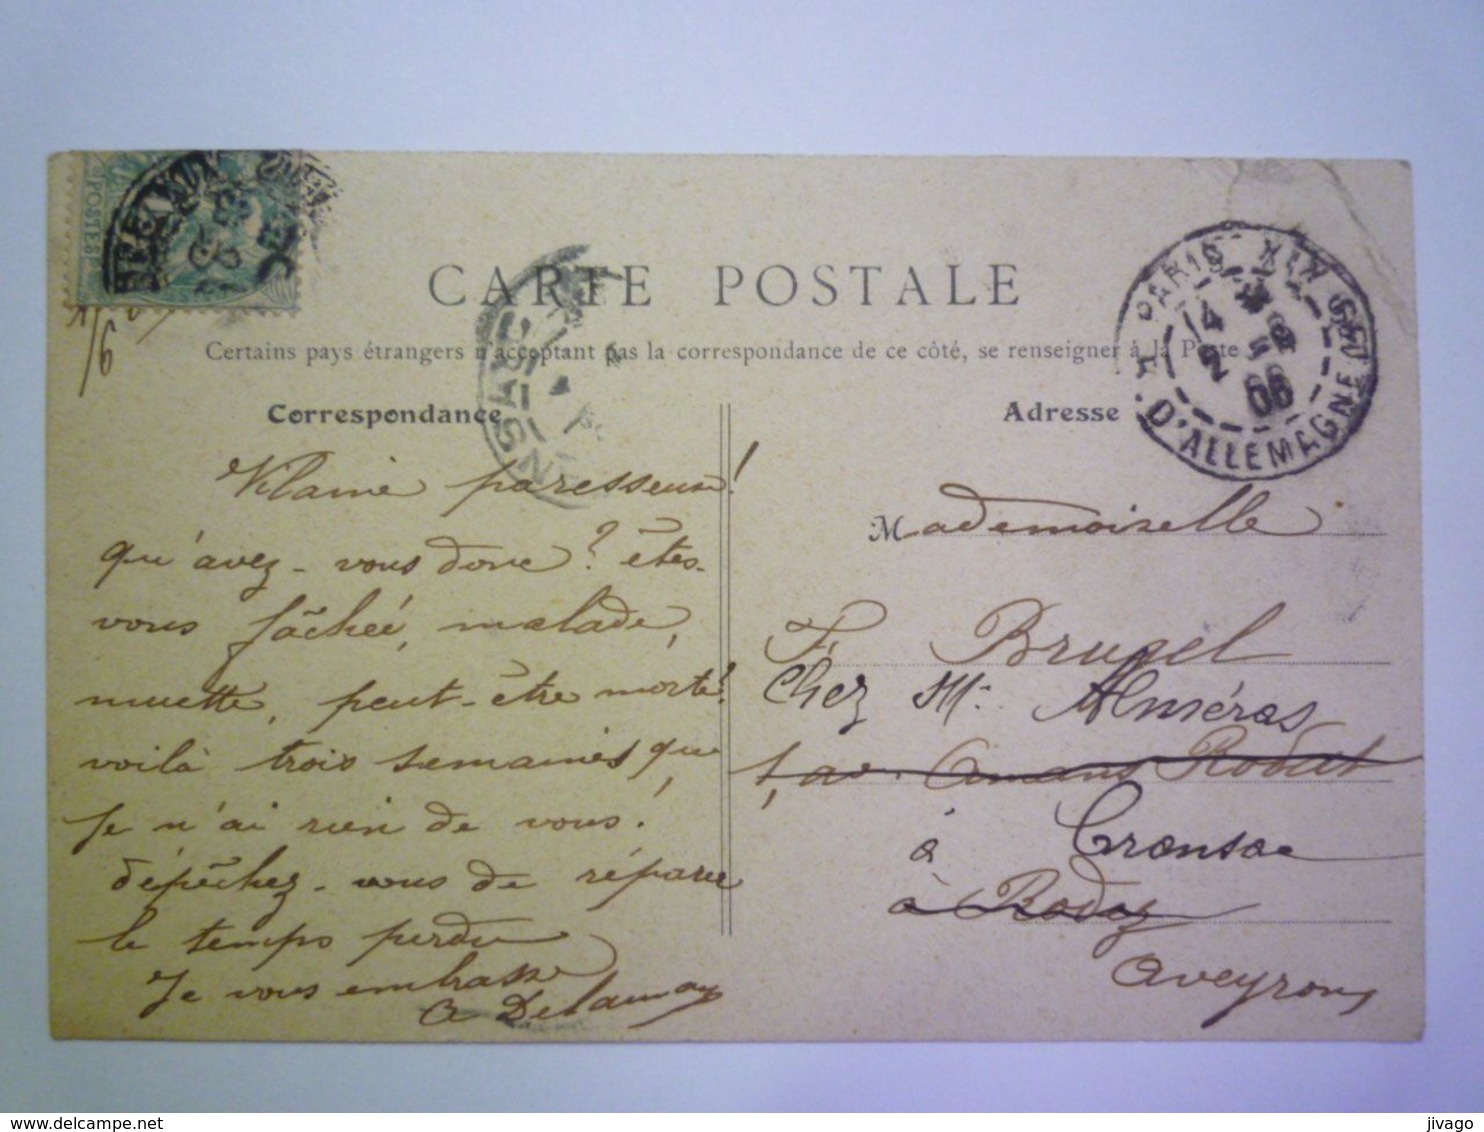 POSTES
CARTE POSTALE
Certains pays étrangers n'acceptant pas la correspondance de ce côté, se renseigner à la Poste
Correspondance
Adresse
PARIS XIX
D'ALLEMAGNE
06
Vilaine paresseuse!
qu'avez-vous donc? êtes-
vous fâchée, malade,
muette, peut-être morte!
voilà trois semaines que
je n'ai rien de vous!
dépêchez-vous de réparer
le temps perdu
Je vous embrasse
A Delaunay
Mademoiselle
F. Brugel
Chez Mr Alméras
1, av. Amans Rodat
à Cransac
à Rodez
Aveyron
jivago